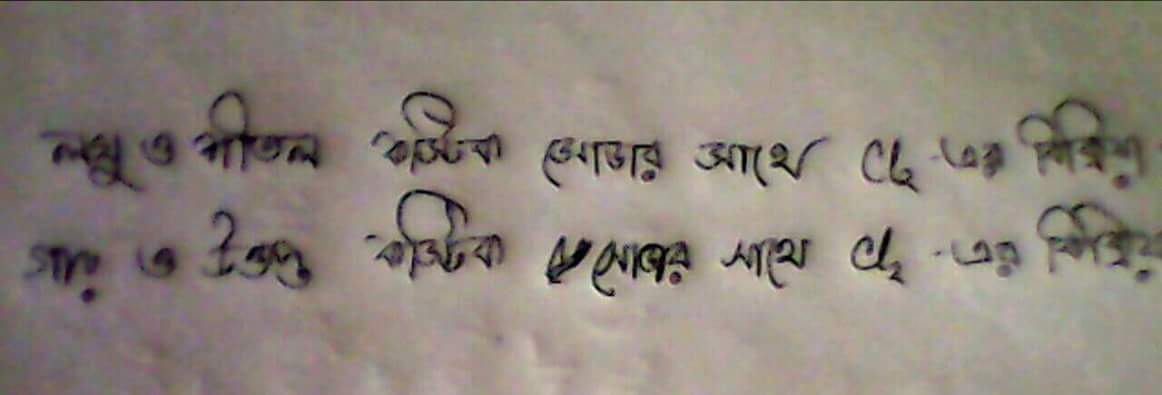 লঘু ও শীতল কস্টিক সোডার সাথে Cl₂ -এর বিক্রিয়া
গাঢ় ও উত্তপ্ত কস্টিক সোডার সাথে Cl₂ -এর বিক্রিয়া